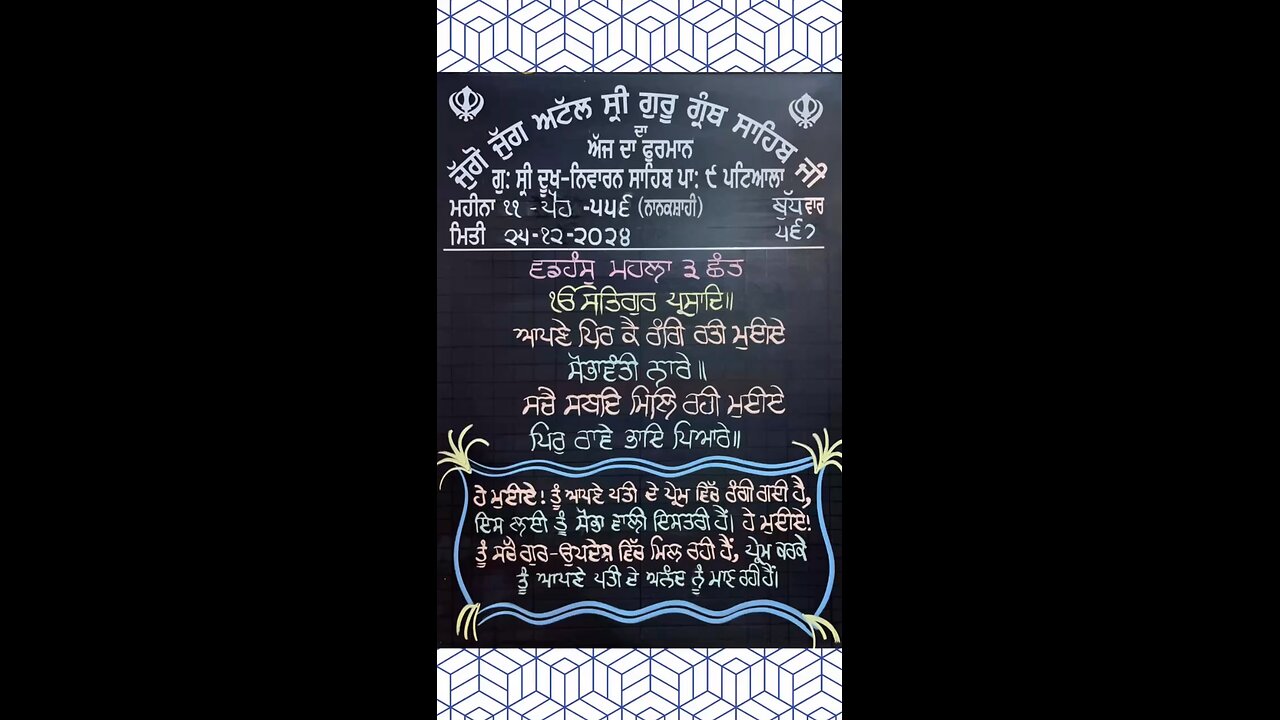 ਜੁੱਗੋ ਜੁੱਗ ਅਟੱਲ ਸ੍ਰੀ ਗੁਰੂ ਗ੍ਰੰਥ ਸਾਹਿਬ ਜੀ
ਦਾ
ਅੱਜ ਦਾ ਫੁਰਮਾਨ
ਗੁ: ਸ੍ਰੀ ਦੂਖ-ਨਿਵਾਰਨ ਸਾਹਿਬ ਪਾ: ੯ ਪਟਿਆਲਾ
ਮਹੀਨਾ ੧੧ - ਪੋਹ -੫੫੬ (ਨਾਨਕਸ਼ਾਹੀ) ਬੁੱਧਵਾਰ
ਮਿਤੀ ੨੫-੧੨-੨੦੨੪ ੫੬੭
ਵਡਹੰਸੁ ਮਹਲਾ ੩ ਛੰਤ
ੴ ਸਤਿਗੁਰ ਪ੍ਰਸਾਦਿ॥
ਆਪਣੇ ਪਿਰ ਕੈ ਰੰਗਿ ਰਤੀ ਮੁਈਏ
ਸੋਭਾਵੰਤੀ ਨਾਰੇ॥
ਸਚੈ ਸਬਦਿ ਮਿਲਿ ਰਹੀ ਮੁਈਏ
ਪਿਰੁ ਰਾਵੇ ਭਾਇ ਪਿਆਰੇ॥
ਹੇ ਮੁਈਏ! ਤੂੰ ਆਪਣੇ ਪਤੀ ਦੇ ਪ੍ਰੇਮ ਵਿੱਚ ਰੰਗੀ ਗਈ ਹੈ,
ਇਸ ਲਈ ਤੂੰ ਸੋਭਾ ਵਾਲੀ ਇਸਤਰੀ ਹੈਂ। ਹੇ ਮੁਈਏ!
ਤੂੰ ਸਚੈ ਗੁਰ-ਉਪਦੇਸ਼ ਵਿੱਚ ਮਿਲ ਰਹੀ ਹੈਂ, ਪ੍ਰੇਮ ਕਰਕੇ
ਤੂੰ ਆਪਣੇ ਪਤੀ ਦੇ ਅਨੰਦ ਨੂੰ ਮਾਣ ਰਹੀ ਹੈਂ।